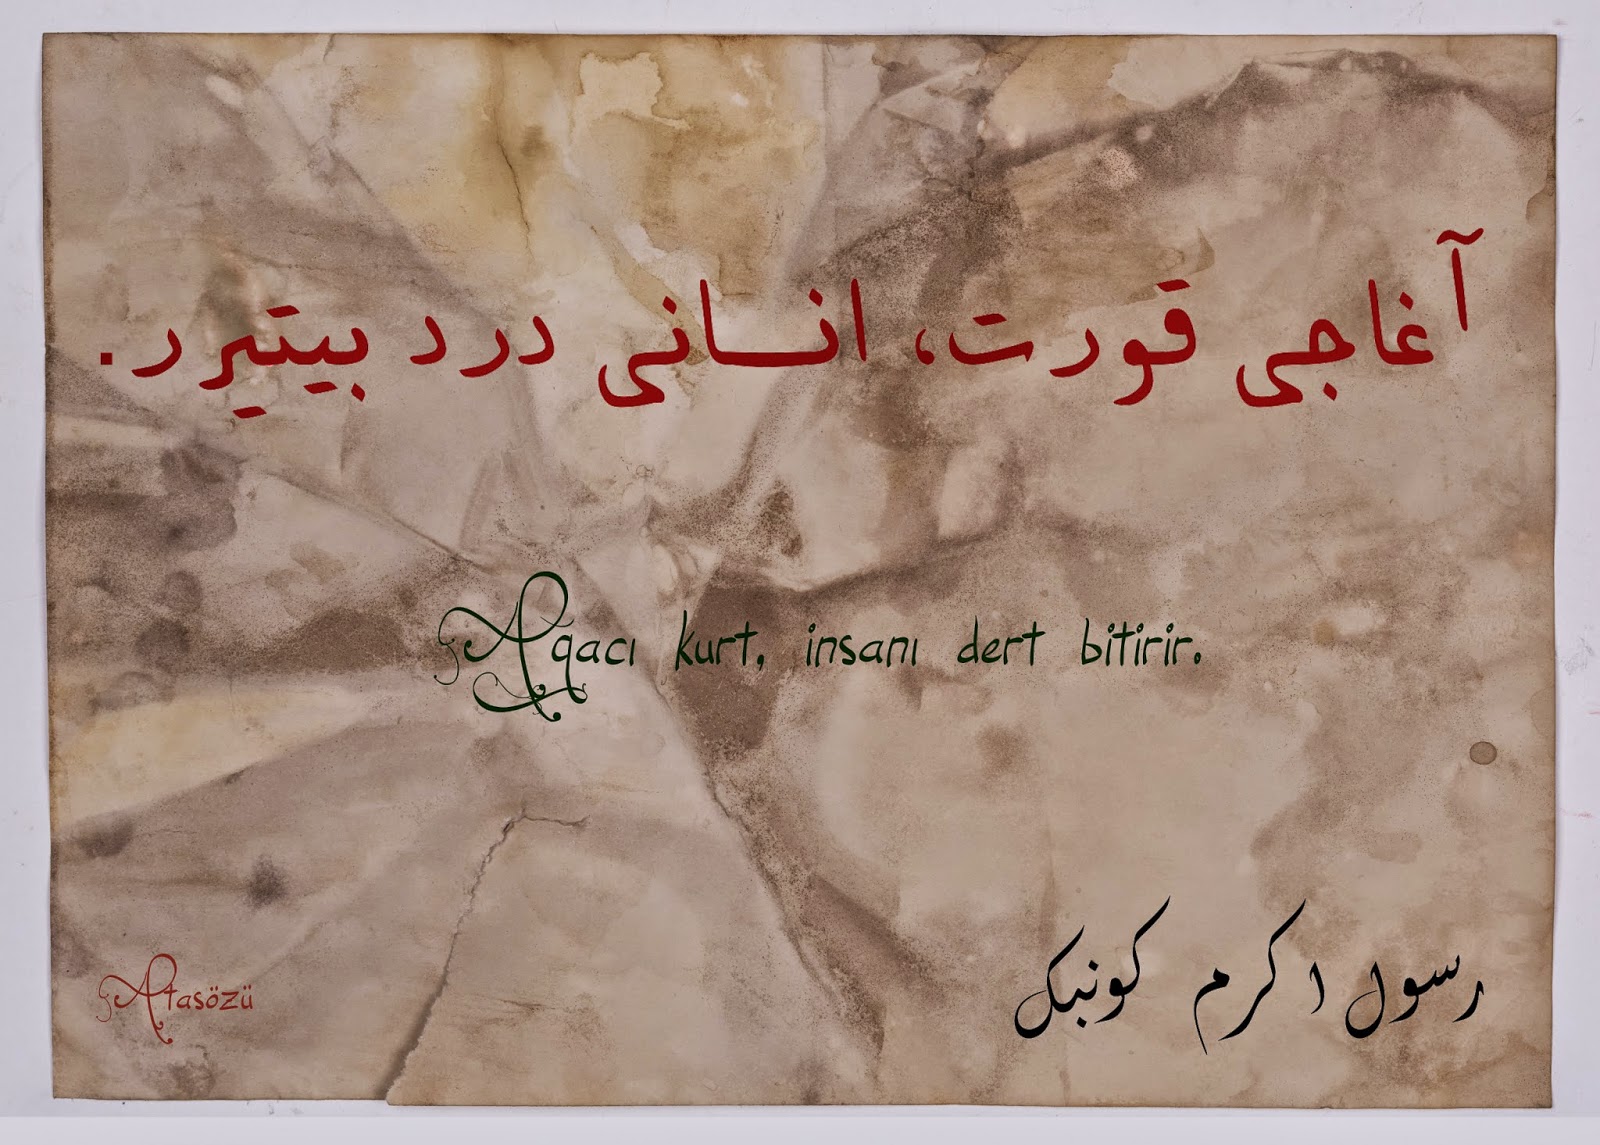 آغاجی قورت، انسانی درد بیتیرر.
Aqacı kurt, insanı dert bitirir.
رسول اکرم کونبک
Atasözü